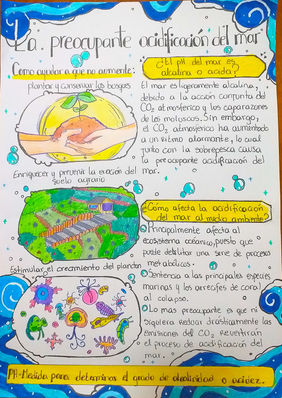 La preocupante acidificación del mar
Como ayudar a que no aumente:
plantar y conservar los bosques
Enriquecer y prevenir la erosión del
suelo agrario
Estimular el crecimiento del plancton
¿El pH del mar es
alcalina o acida?
El mar es ligeramente alcalino,
debido a la acción conjunta del
CO₂ atmosférico y los caparazones
de los moluscos. Sin embargo,
el CO₂ atmosférico ha aumentado
a un ritmo alarmante, lo cual
junto con la sobrepesca causa
la preocupante acidificación del
mar.
¿Como afecta la acidificación
del mar al medio ambiente?
Principalmente afecta al
ecosistema oceánico, puesto que
puede debilitar una serie de procesos
metabólicos
Sentencia a las principales especies
marinas y los arrecifes de coral
al colapso.
Lo mas preocupante es que ni
siquiera reducir drásticamente las
emisiones del CO₂ revertirían
el proceso de acidificación del
mar.
PH-Medida para determinar el grado de alcalinidad o acidez.